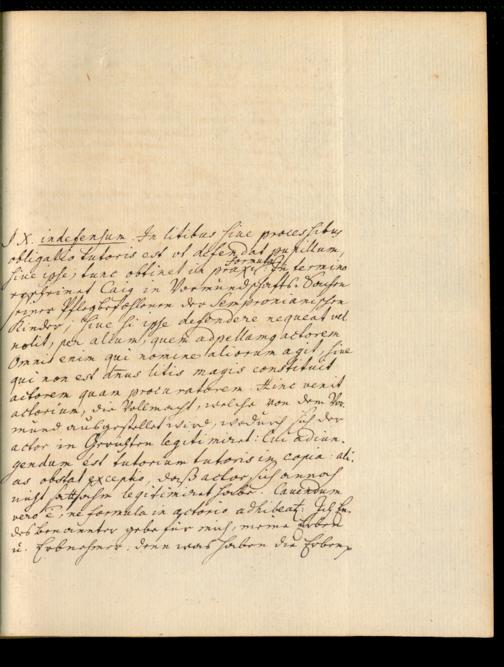 § X. indefensum. In litibus sive processibus
obligatio tutoris est ut defendat pupillum,
sive ipse, tunc obtinet in praxi Formula: In termino
erscheinet Caig in Vormundschafts Sachen
seiner Pflegbefohlenen der Sempronianischen
Kinder, sive si ipse defendere nequeat vel
nolit, per alium, quem adpellamq actorem
Omnis enim qui nomine aliorum agit, sive
qui non est dnus litis magis constituit
actorem quam procuratorem. Hinc venit
actorium, die Vollmacht, welche von dem Vor-
mund ausgestellet wird, wodurch sich der
actor in Gerichten legitimiret: Cui adiun-
gendum est tutorium tutoris in copia: ali-
as obstat exceptio, daß actor sich annoch
nicht sattsahm legitimiret habe. Cavendum
vero e, ne formula in actorio adhibeat: Ich En-
des benannter gebe für mich, meine Erben
u. Erbnehmer. denn was haben die Erben